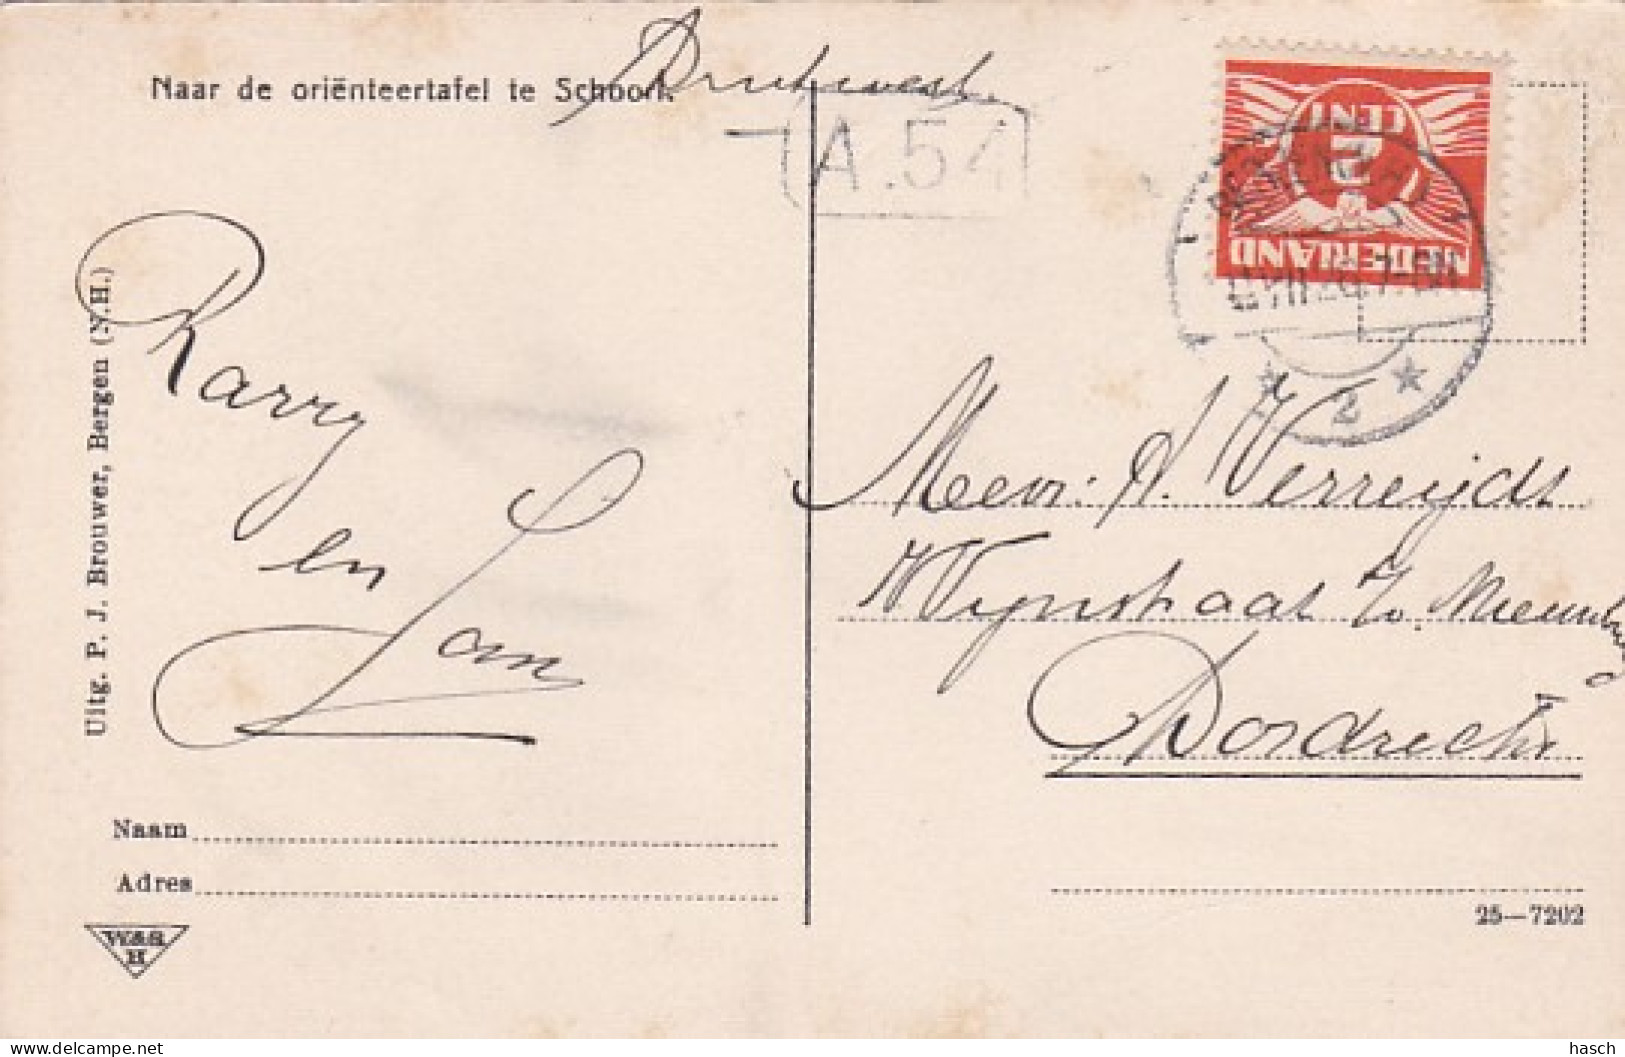 Naar de oriënteertafel te Schoorl.
Drukwerk.
A.54
NEDERLAND
2
CENT
2
Uitg. P. J. Brouwer, Bergen (N.H.)
Karry
en
Jan
Mevr: A. Verreijdt
Wijnstraat
Dordrecht
Naam
Adres
25—7202
hasch
delcampe.net